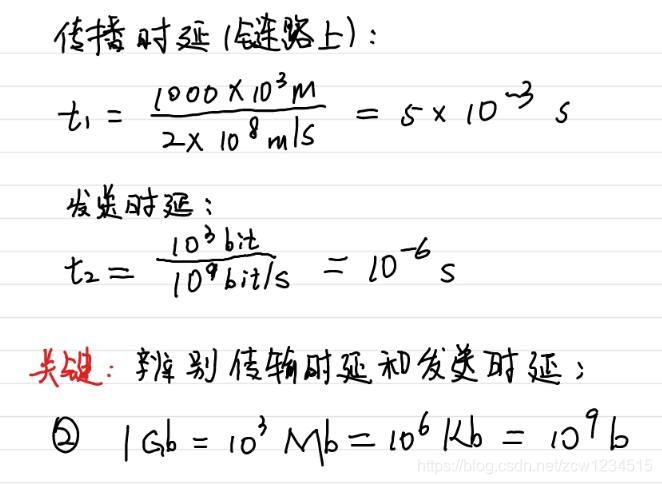 传播时延(链路上):
t₁ = 1000 × 10³ m / 2 × 10⁸ m/s = 5 × 10⁻³ s
发送时延:
t₂ = 10³ bit / 10⁹ bit/s = 10⁻⁶ s
关键: 辨别传输时延和发送时延;
② 1Gb = 10³ Mb = 10⁶ Kb = 10⁹ b
https://blog.csdn.net/zcw1234515